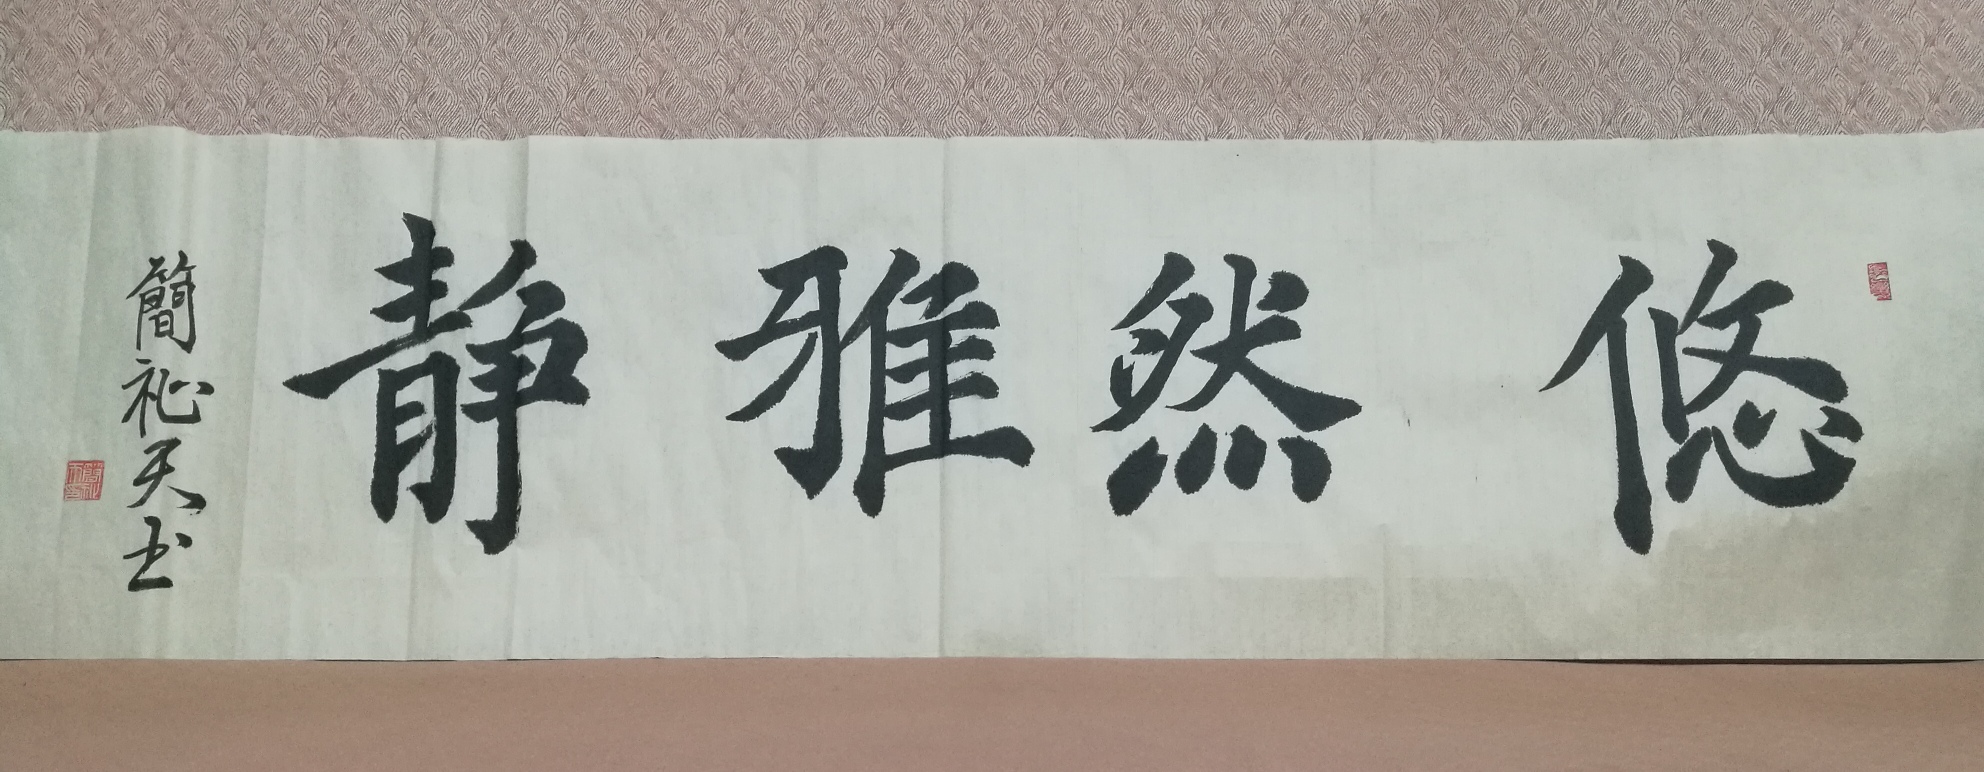 悠然雅静
簡祉天书